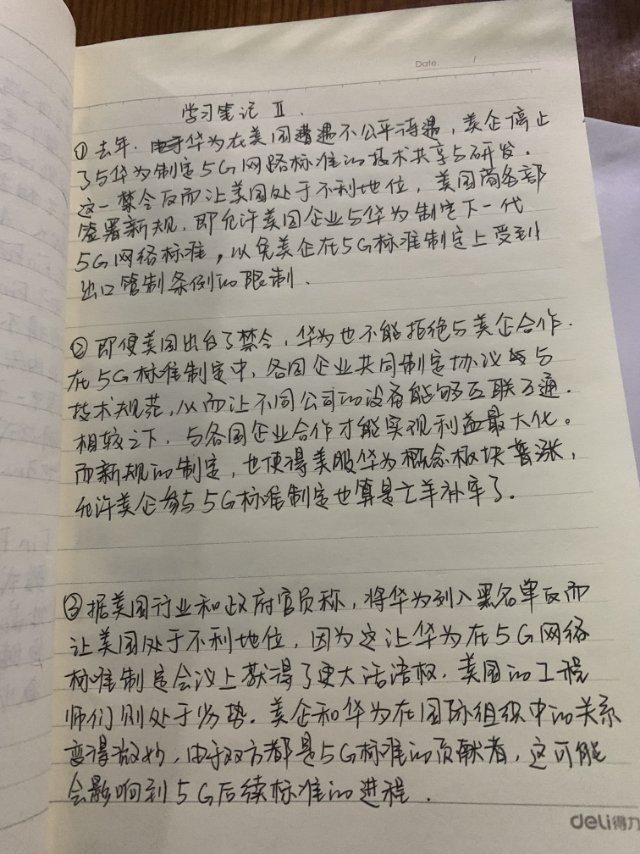 Date /
学习笔记 Ⅱ.
①去年,华为在美国遭遇不公平待遇,美企停止
了与华为制定5G网络标准的技术共享与研发.
这一禁令反而让美国处于不利地位,美国商务部
签署新规,即允许美国企业与华为制定下一代
5G网络标准,以免美企在5G标准制定上受到
出口管制条例的限制.
②即便美国出台了禁令,华为也不能拒绝与美企合作.
在5G标准制定中,各国企业共同制定协议与
技术规范,从而让不同公司的设备能够互联互通.
相较之下,与各国企业合作才能实现利益最大化。
而新规的制定,也使得美股华为概念板块普涨,
允许美企参与5G标准制定也算是亡羊补牢了。
③据美国行业和政府官员称,将华为列入黑名单反而
让美国处于不利地位,因为这让华为在5G网络
标准制定会议上获得了更大话语权.美国的工程
师们则处于劣势.美企和华为在国际组织中的关系
变得微妙,由于双方都是5G标准的贡献者,这可能
会影响到5G后续标准的进程.
deli得力